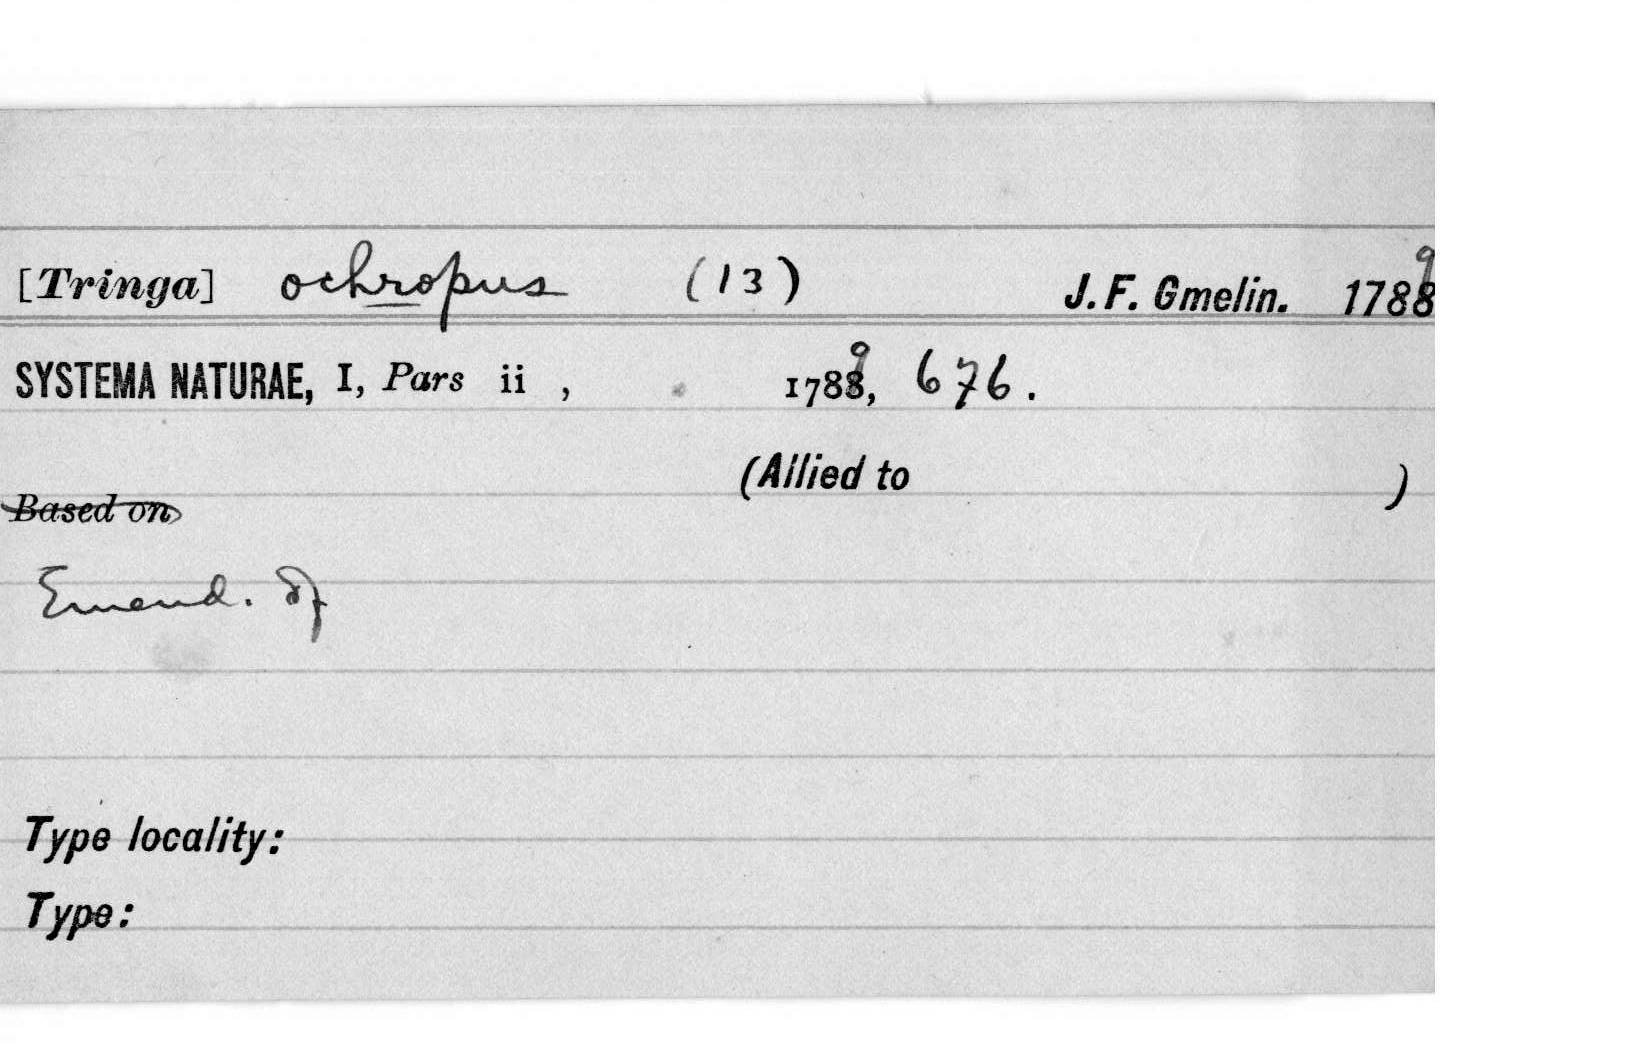 [Tringa] ochropus (13) J. F. Gmelin. 1789
SYSTEMA NATURAE, I, Pars ii , 1789, 676.
(Allied to )
Based on
Emend.
Type locality:
Type: